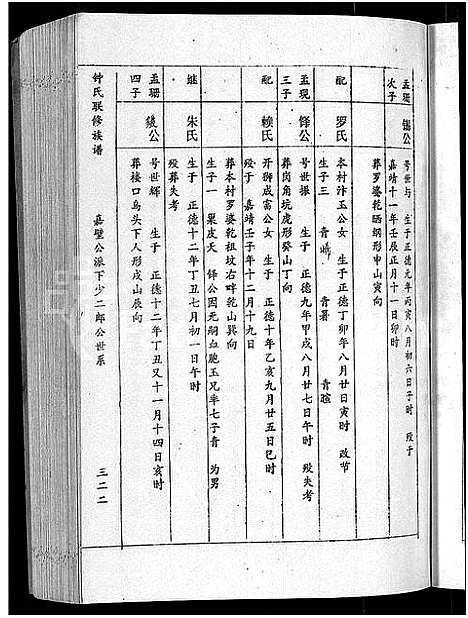 孟珊次子 锡公 号世与 生于正德元年丙寅八月初六日子时 殁于
嘉靖十一年壬辰正月十一日卯时
葬罗婆乾晒纲形申山寅向
配 罗氏 本村汴玉公女 生于正德丁卯年八月廿日寅时 改节
生子三 青 青署 青暄
孟珊三子 铎公 号世振 生于 正德九年甲戌八月廿七日午时 殁失考
葬岗角坑虎形癸山丁向
配 赖氏 开狮成富公女 生于 正德十年乙亥九月廿五日巳时
殁于 嘉靖壬子年十二月十九日
葬本村罗婆乾祖坟右畔乾山巽向
生子一 粟皮天 铎公因无嗣血胞玉兄半七子青 为男
继 朱氏 生于 正德十二年丁丑七月初一日午时
殁葬失考
孟珊四子 公 号世辉 生于 正德十二年丁丑又十一月十四日亥时
葬楼口乌头下人形戌山辰向
钟氏联修族谱 嘉璧公派下少二郎公世系 三二二